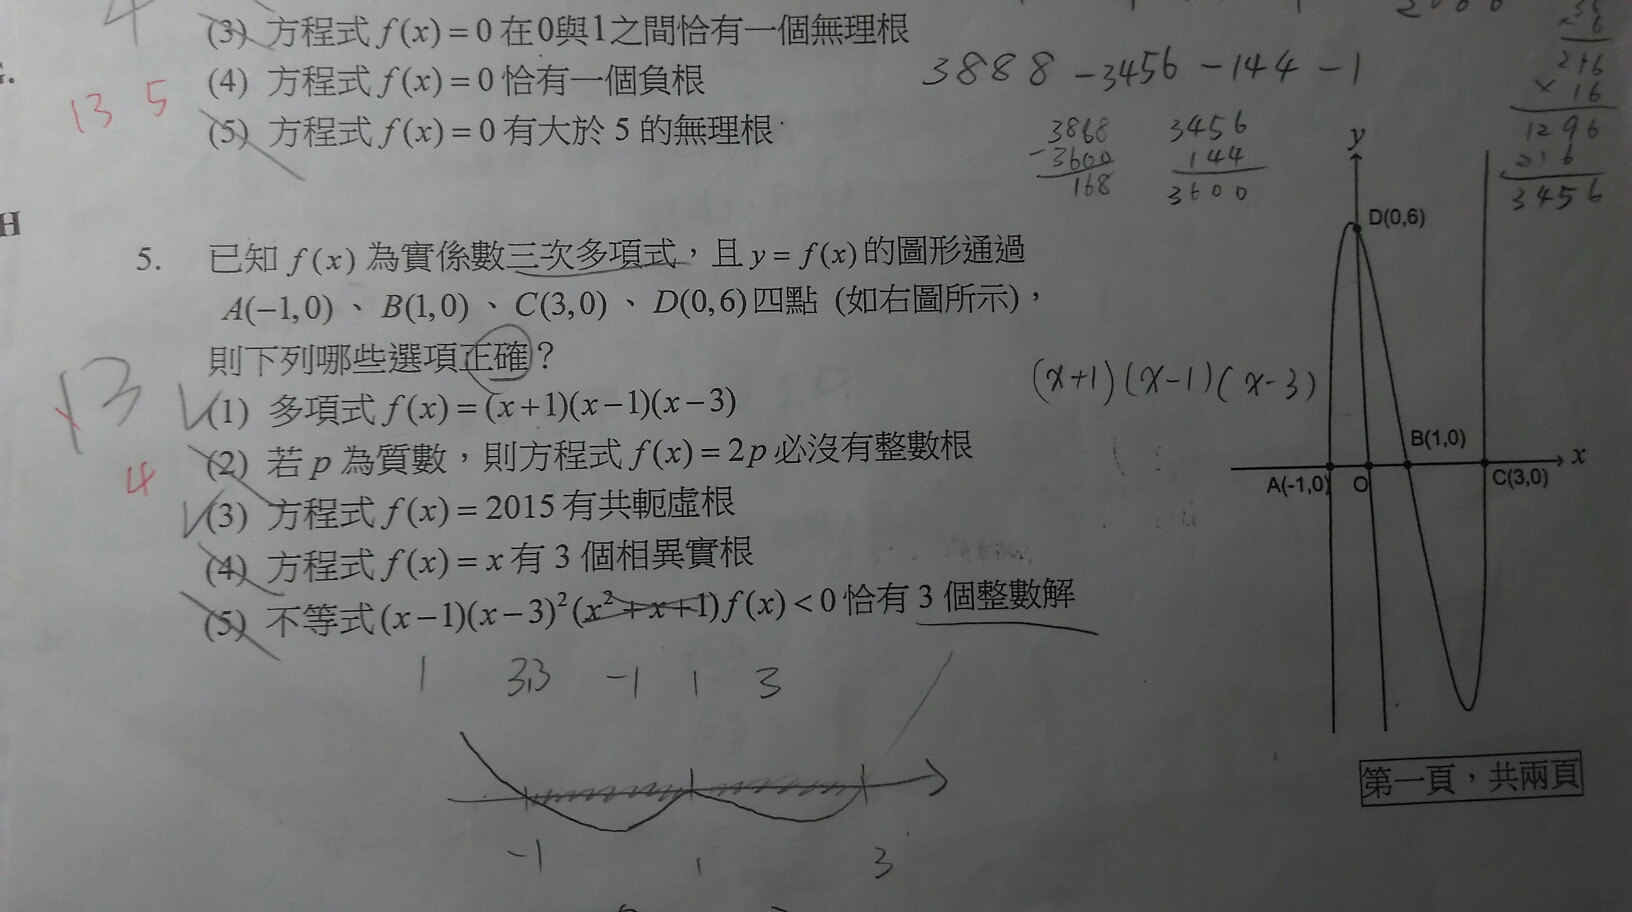 (3) 方程式 f(x) = 0 在0與1之間恰有一個無理根
(4) 方程式 f(x) = 0 恰有一個負根
(5) 方程式 f(x) = 0 有大於 5 的無理根
13 5
3888 - 3456 - 144 - 1
3868
-3600
168
3456
144
3600
216
× 16
1296
216
3456
H
5. 已知 f(x) 為實係數三次多項式，且 y = f(x) 的圖形通過
A(-1,0)、B(1,0)、C(3,0)、D(0,6)四點 (如右圖所示)，
則下列哪些選項正確？
(1) 多項式 f(x) = (x+1)(x-1)(x-3)
(2) 若 p 為質數，則方程式 f(x) = 2p 必沒有整數根
(3) 方程式 f(x) = 2015 有共軛虛根
(4) 方程式 f(x) = x 有 3 個相異實根
(5) 不等式 (x-1)(x-3)²(x²+x+1)f(x) < 0 恰有 3 個整數解
13
4
(x+1)(x-1)(x-3)
y
D(0,6)
B(1,0)
x
A(-1,0)
O
C(3,0)
1 3,3 -1 1 3
-1 1 3
第一頁，共兩頁